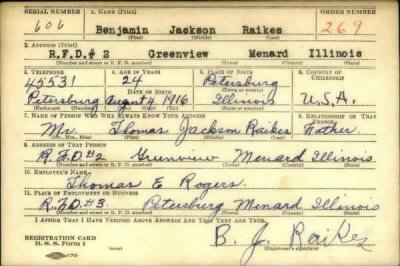 SERIAL NUMBER 1. NAME (Print) ORDER NUMBER
606 Benjamin Jackson Raikes 269
(First) (Middle) (Last)
2. ADDRESS (Print)
R.F.D.# 2 Greenview Menard Illinois
(Number and street or R. F. D. number) (Town) (County) (State)
3. TELEPHONE 4. AGE IN YEARS 5. PLACE OF BIRTH 6. COUNTRY OF CITIZENSHIP
45531 24 Petersburg
DATE OF BIRTH
Petersburg August 4, 1916 Illinois U.S.A.
7. NAME OF PERSON WHO WILL ALWAYS KNOW YOUR ADDRESS 8. RELATIONSHIP OF THAT PERSON
Mr. Thomas Jackson Raikes Father
9. ADDRESS OF THAT PERSON
R.F.D#2 Greenview Menard Illinois.
(Number and street or R. F. D. number) (Town) (County) (State)
10. EMPLOYER'S NAME
Thomas E. Rogers.
11. PLACE OF EMPLOYMENT OR BUSINESS
R.F.D#3. Petersburg Menard Illinois
(Number and street or R. F. D. number) (Town) (County) (State)
I AFFIRM THAT I HAVE VERIFIED ABOVE ANSWERS AND THAT THEY ARE TRUE.
REGISTRATION CARD
D. S. S. Form 1
B. J. Raikes
(Registrant's signature)